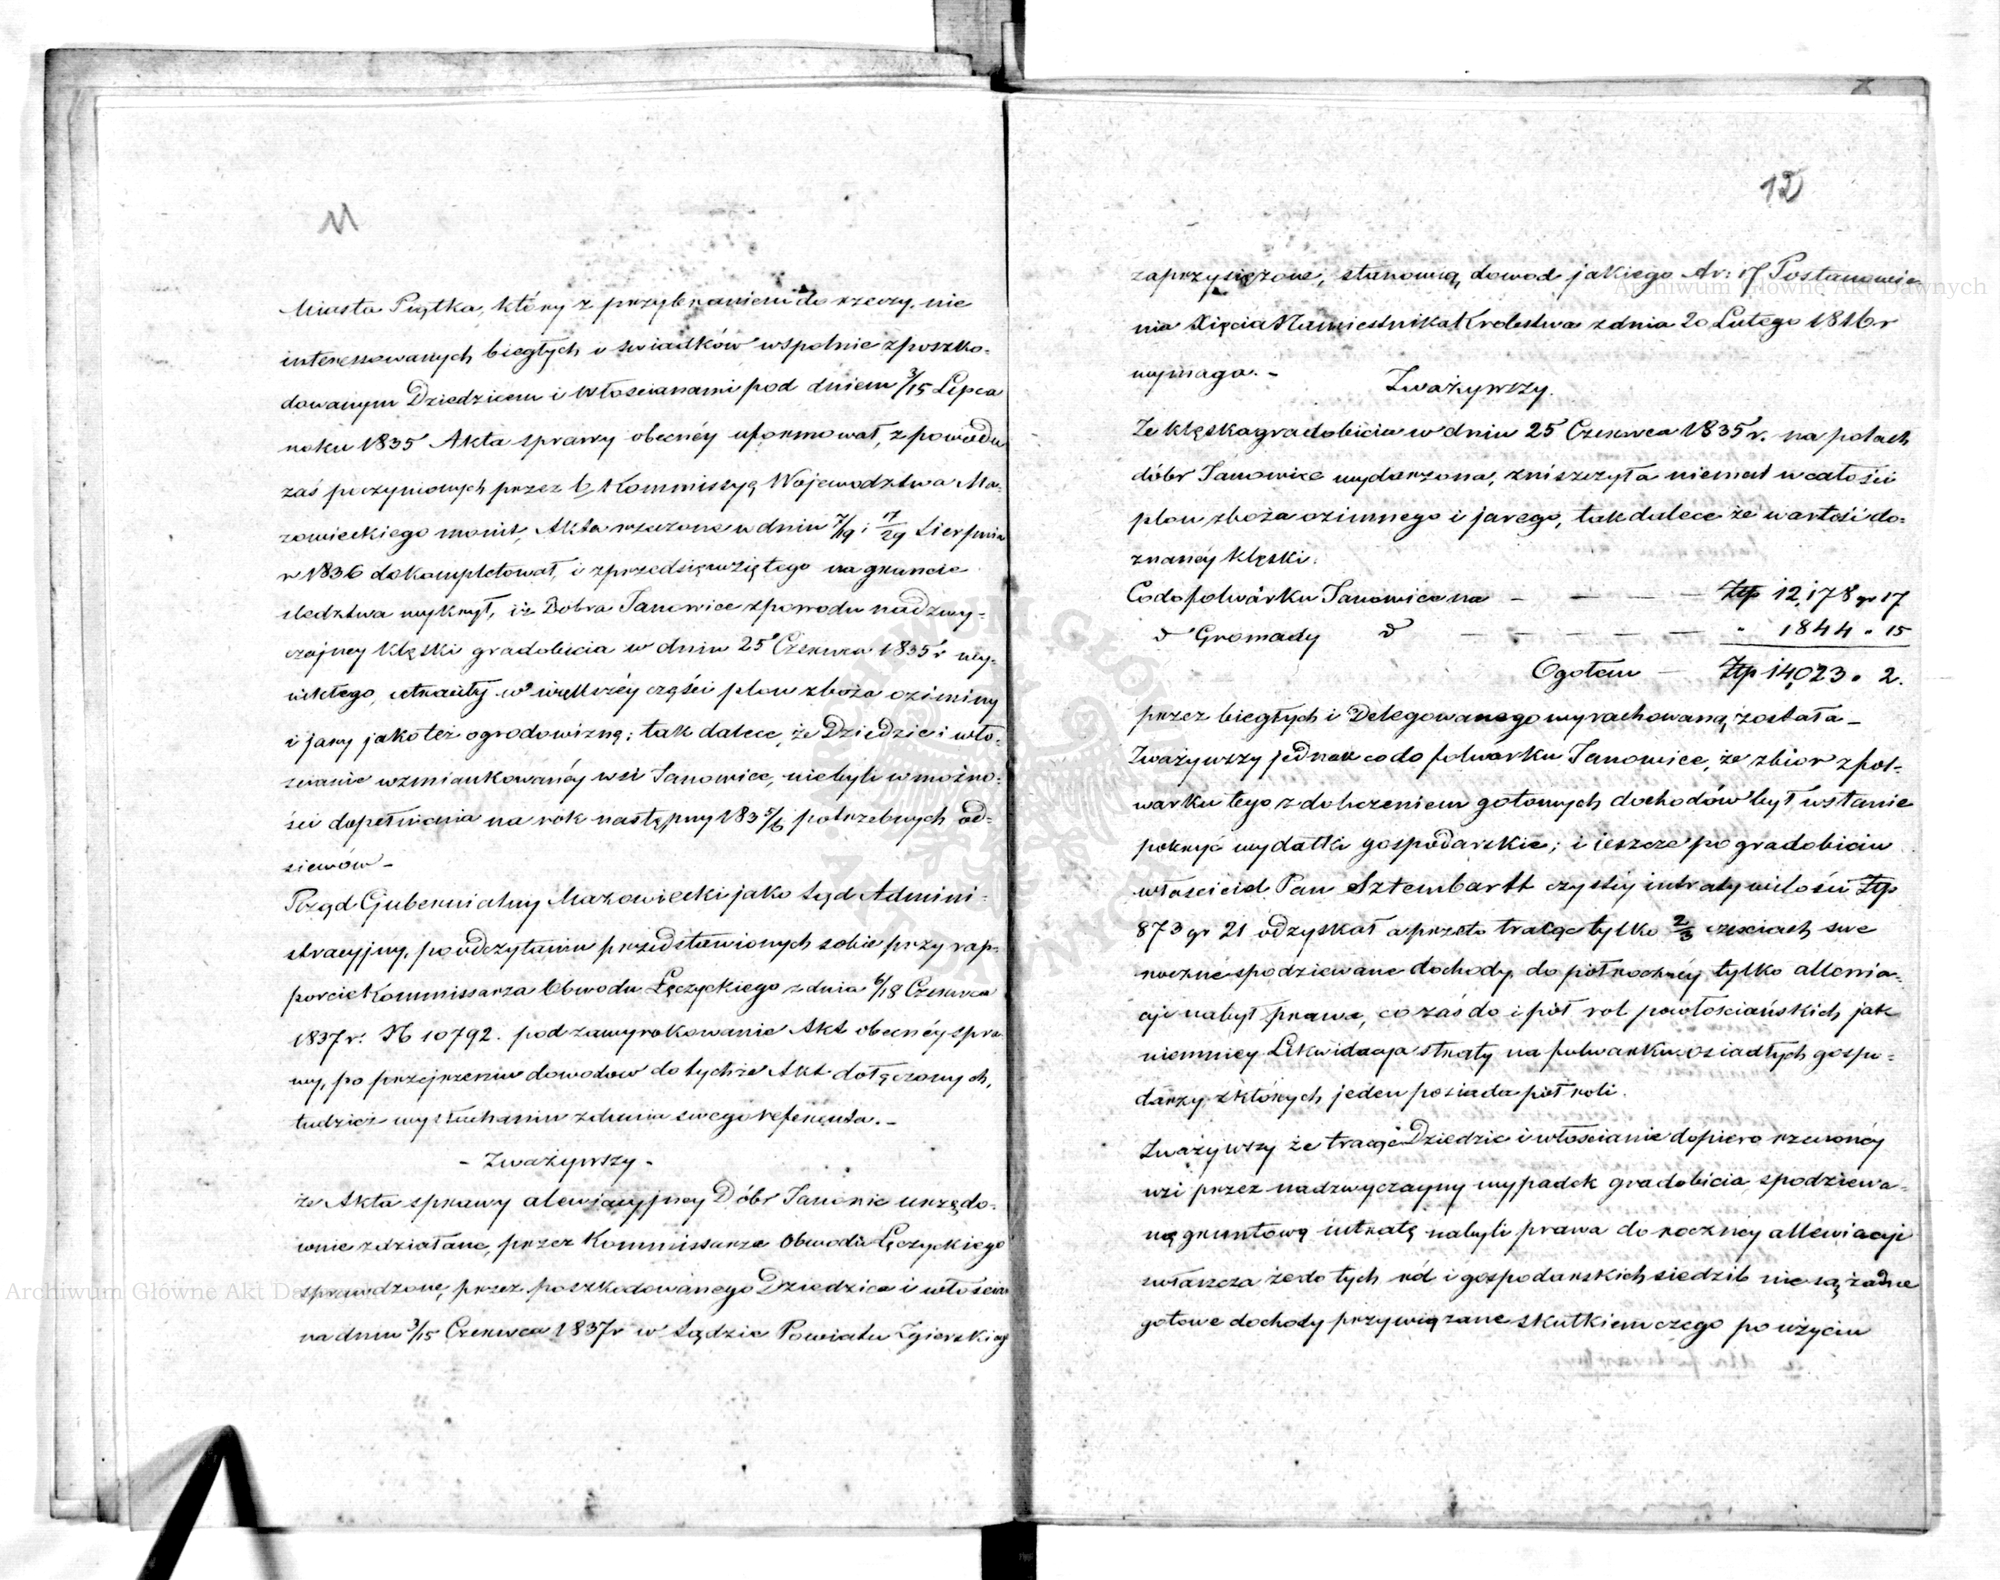 11
Miasta Piątka, który z przybraniem do rzeczy, nie
interessowanych biegłych i świadków wspolnie z poszko-
dowanym Dziedzicem i Włościanami pod dniem 3/15 Lipca
roku 1835 Akta sprawy obecnéy uformował, z powodu
zaś poczynionych przez b. Kommissyę Województwa Ma-
zowieckiego monit, Akta rzeczone w dniu 7/19 i 17/29 Sierpnia
r 1836 dokompletował, i z przedsięwziętego na gruncie
śledztwa wykrył, iż Dobra Janowice z powodu nadzwy-
czajney klęski gradobicia w dniu 25 Czerwca 1835 r wy-
nikłego, utraciły w większéy części plon zboża oziminy
i jary jakoteż ogrodowizną; tak dalece, że Dziedzic i wło-
ścianie wzmiankowanéy wsi Janowice, niebyli w możno-
ści dopełnienia na rok następny 1835/6 potrzebnych od-
siewów –
Rząd Gubernialny Mazowiecki jako Sąd Admini-
stracyjny, po odczytaniu przedstawionych sobie przy rap-
porcie Kommissarza Obwodu Łęczyckiego z dnia 6/18 Czerwca
1837 r. N 10792. pod zawyrokowanie Akt obecnéy spra
wy, po przejrzeniu dowodow do tychże Akt dołączonych,
tudzież wysłuchaniu zdania swego referenta. –
– Zważywszy –
że Akta sprawy alewiacyjney Dóbr Janowic urzędo-
wnie zdziałane, przez Kommissarza Obwodu Łęczyckiego
sprawdzone, przez poszkodowanego Dziedzica i włościan
na dniu 3/15 Czerwca 1837 r w Sądzie Powiatu Zgierskiego
12
zaprzysiężone, stanowią dowod jakiego Ar: 17 Postanowie
nia Xięcia Namiestnika Krolestwa z dnia 20 Lutego 1816 r
wymaga. –
Zważywszy.
Że klęska gradobicia w dniu 25 Czerwca 1835 r. na polach
dóbr Janowice wydarzona, zniszczyła niemal w całości
plon zboża ozimnego i jarego, tak dalece że wartość do-
znanéy klęski.
Co do folwárku Janowice na – – – – Złp 12,178 gr 17
d Gromady d – – – – – " 1844 " 15
Ogołem – Złp 14,023 " 2.
przez biegłych i Delegowanego wyrachowaną została –
Zważywszy jednak co do folwárku Janowice, że zbior z fol-
warku tego z doliczeniem gotowych dochodów był w stanie
pokryć wydatki gospodarskie; i jeszcze po gradobiciu
właściciel Pan Sztembartt czystéy intraty w ilości Złp
873 gr 21 odzyskał a przeto tracąc tylko 2/3 częściach swe
roczne spodziewane dochody, do półrocznéy tylko allewia-
cji nabył prawa, co zaś do i pół rol powłościańskich, jak
niemniey Likwidacja straty na folwarku osiadłych gospo-
darzy z których jeden posiada pół roli.
Zważywszy że tracąc Dziedzic i włościanie dopiero rzeczonéy
wsi przez nadzwyczayny wypadek gradobicia, spodziewa-
ną gruntową intratę nabyli prawa do roczney allewiacji
zwłaszcza że do tych ról i gospodarskich siedzib nie są żadne
gotowe dochody przywiązane skutkiem czego po użyciu